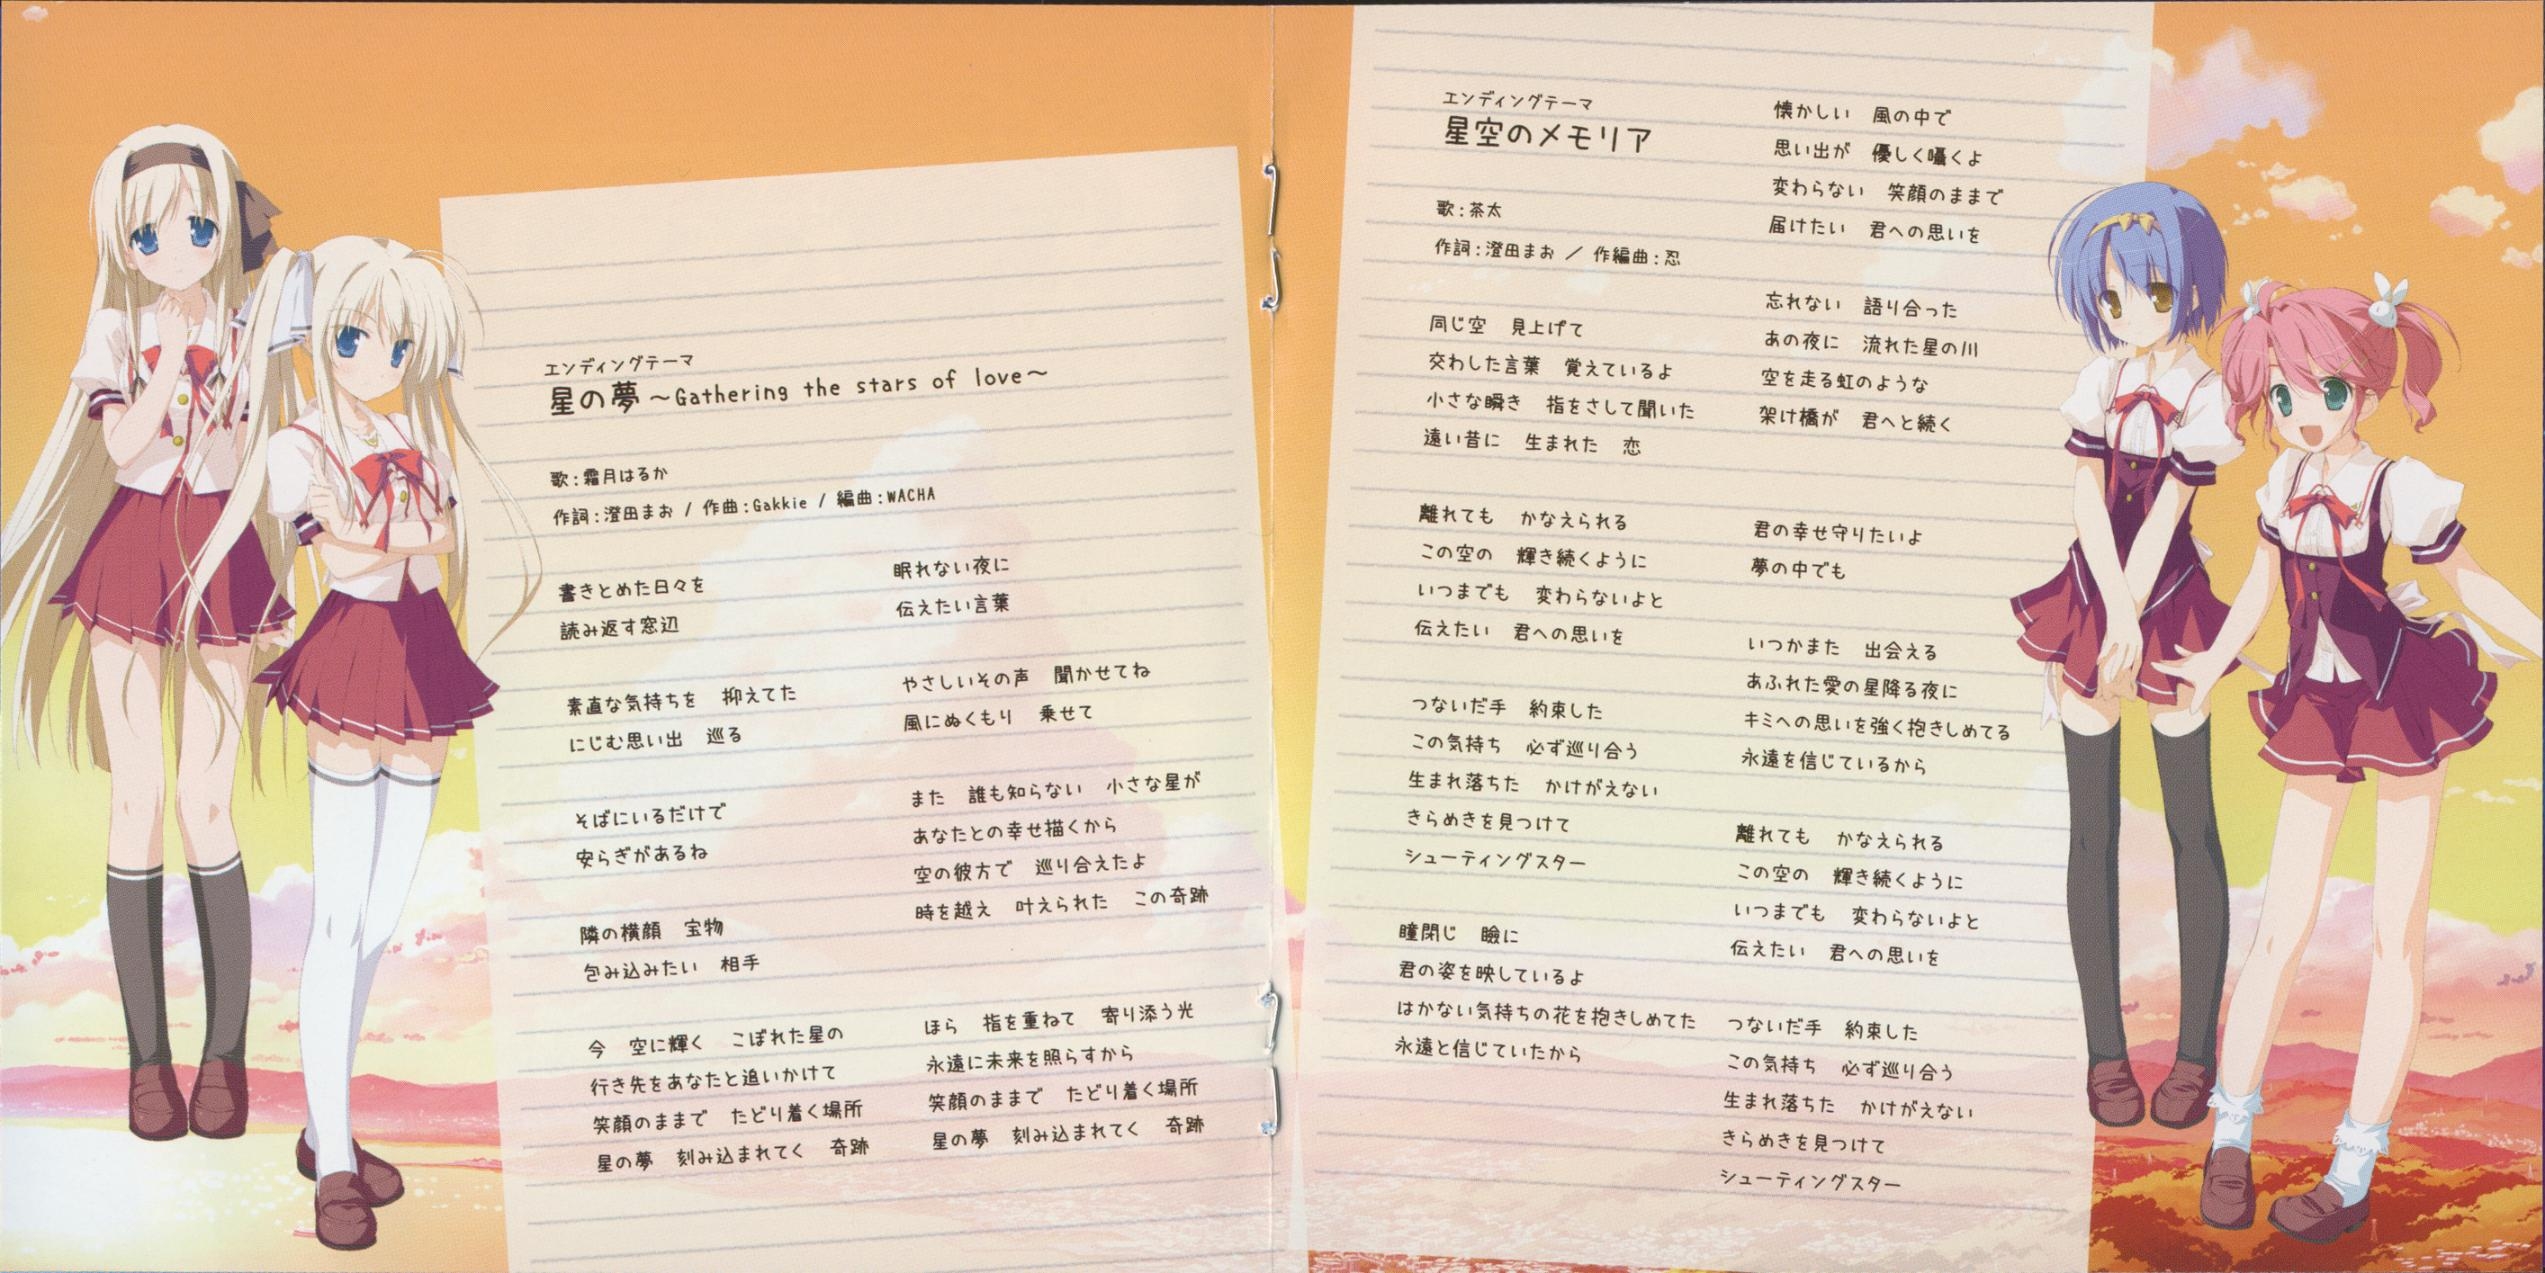 エンディングテーマ
星の夢～Gathering the stars of love～
歌:霜月はるか
作詞:澄田まお / 作曲:Gakkie / 編曲:WACHA
書きとめた日々を
読み返す窓辺
素直な気持ちを　抑えてた
にじむ思い出　巡る
そばにいるだけで
安らぎがあるね
隣の横顔　宝物
包み込みたい　相手
今　空に輝く　こぼれた星の
行き先をあなたと追いかけて
笑顔のままで　たどり着く場所
星の夢　刻み込まれてく　奇跡
眠れない夜に
伝えたい言葉
やさしいその声　聞かせてね
風にぬくもり　乗せて
また　誰も知らない　小さな星が
あなたとの幸せ描くから
空の彼方で　巡り合えたよ
時を越え　叶えられた　この奇跡
ほら　指を重ねて　寄り添う光
永遠に未来を照らすから
笑顔のままで　たどり着く場所
星の夢　刻み込まれてく　奇跡
エンディングテーマ
星空のメモリア
歌:茶太
作詞:澄田まお ／ 作編曲:忍
同じ空　見上げて
交わした言葉　覚えているよ
小さな瞬き　指をさして聞いた
遠い昔に　生まれた　恋
離れても　かなえられる
この空の　輝き続くように
いつまでも　変わらないよと
伝えたい　君への思いを
つないだ手　約束した
この気持ち　必ず巡り合う
生まれ落ちた　かけがえない
きらめきを見つけて
シューティングスター
瞳閉じ　瞼に
君の姿を映しているよ
はかない気持ちの花を抱きしめてた
永遠と信じていたから
懐かしい　風の中で
思い出が　優しく囁くよ
変わらない　笑顔のままで
届けたい　君への思いを
忘れない　語り合った
あの夜に　流れた星の川
空を走る虹のような
架け橋が　君へと続く
君の幸せ守りたいよ
夢の中でも
いつかまた　出会える
あふれた愛の星降る夜に
キミへの思いを強く抱きしめてる
永遠を信じているから
離れても　かなえられる
この空の　輝き続くように
いつまでも　変わらないよと
伝えたい　君への思いを
つないだ手　約束した
この気持ち　必ず巡り合う
生まれ落ちた　かけがえない
きらめきを見つけて
シューティングスター